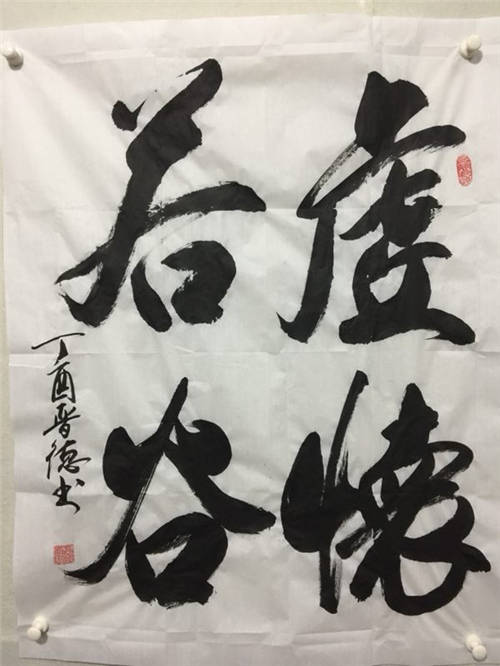 虚懷
若谷
丁酉晋德书